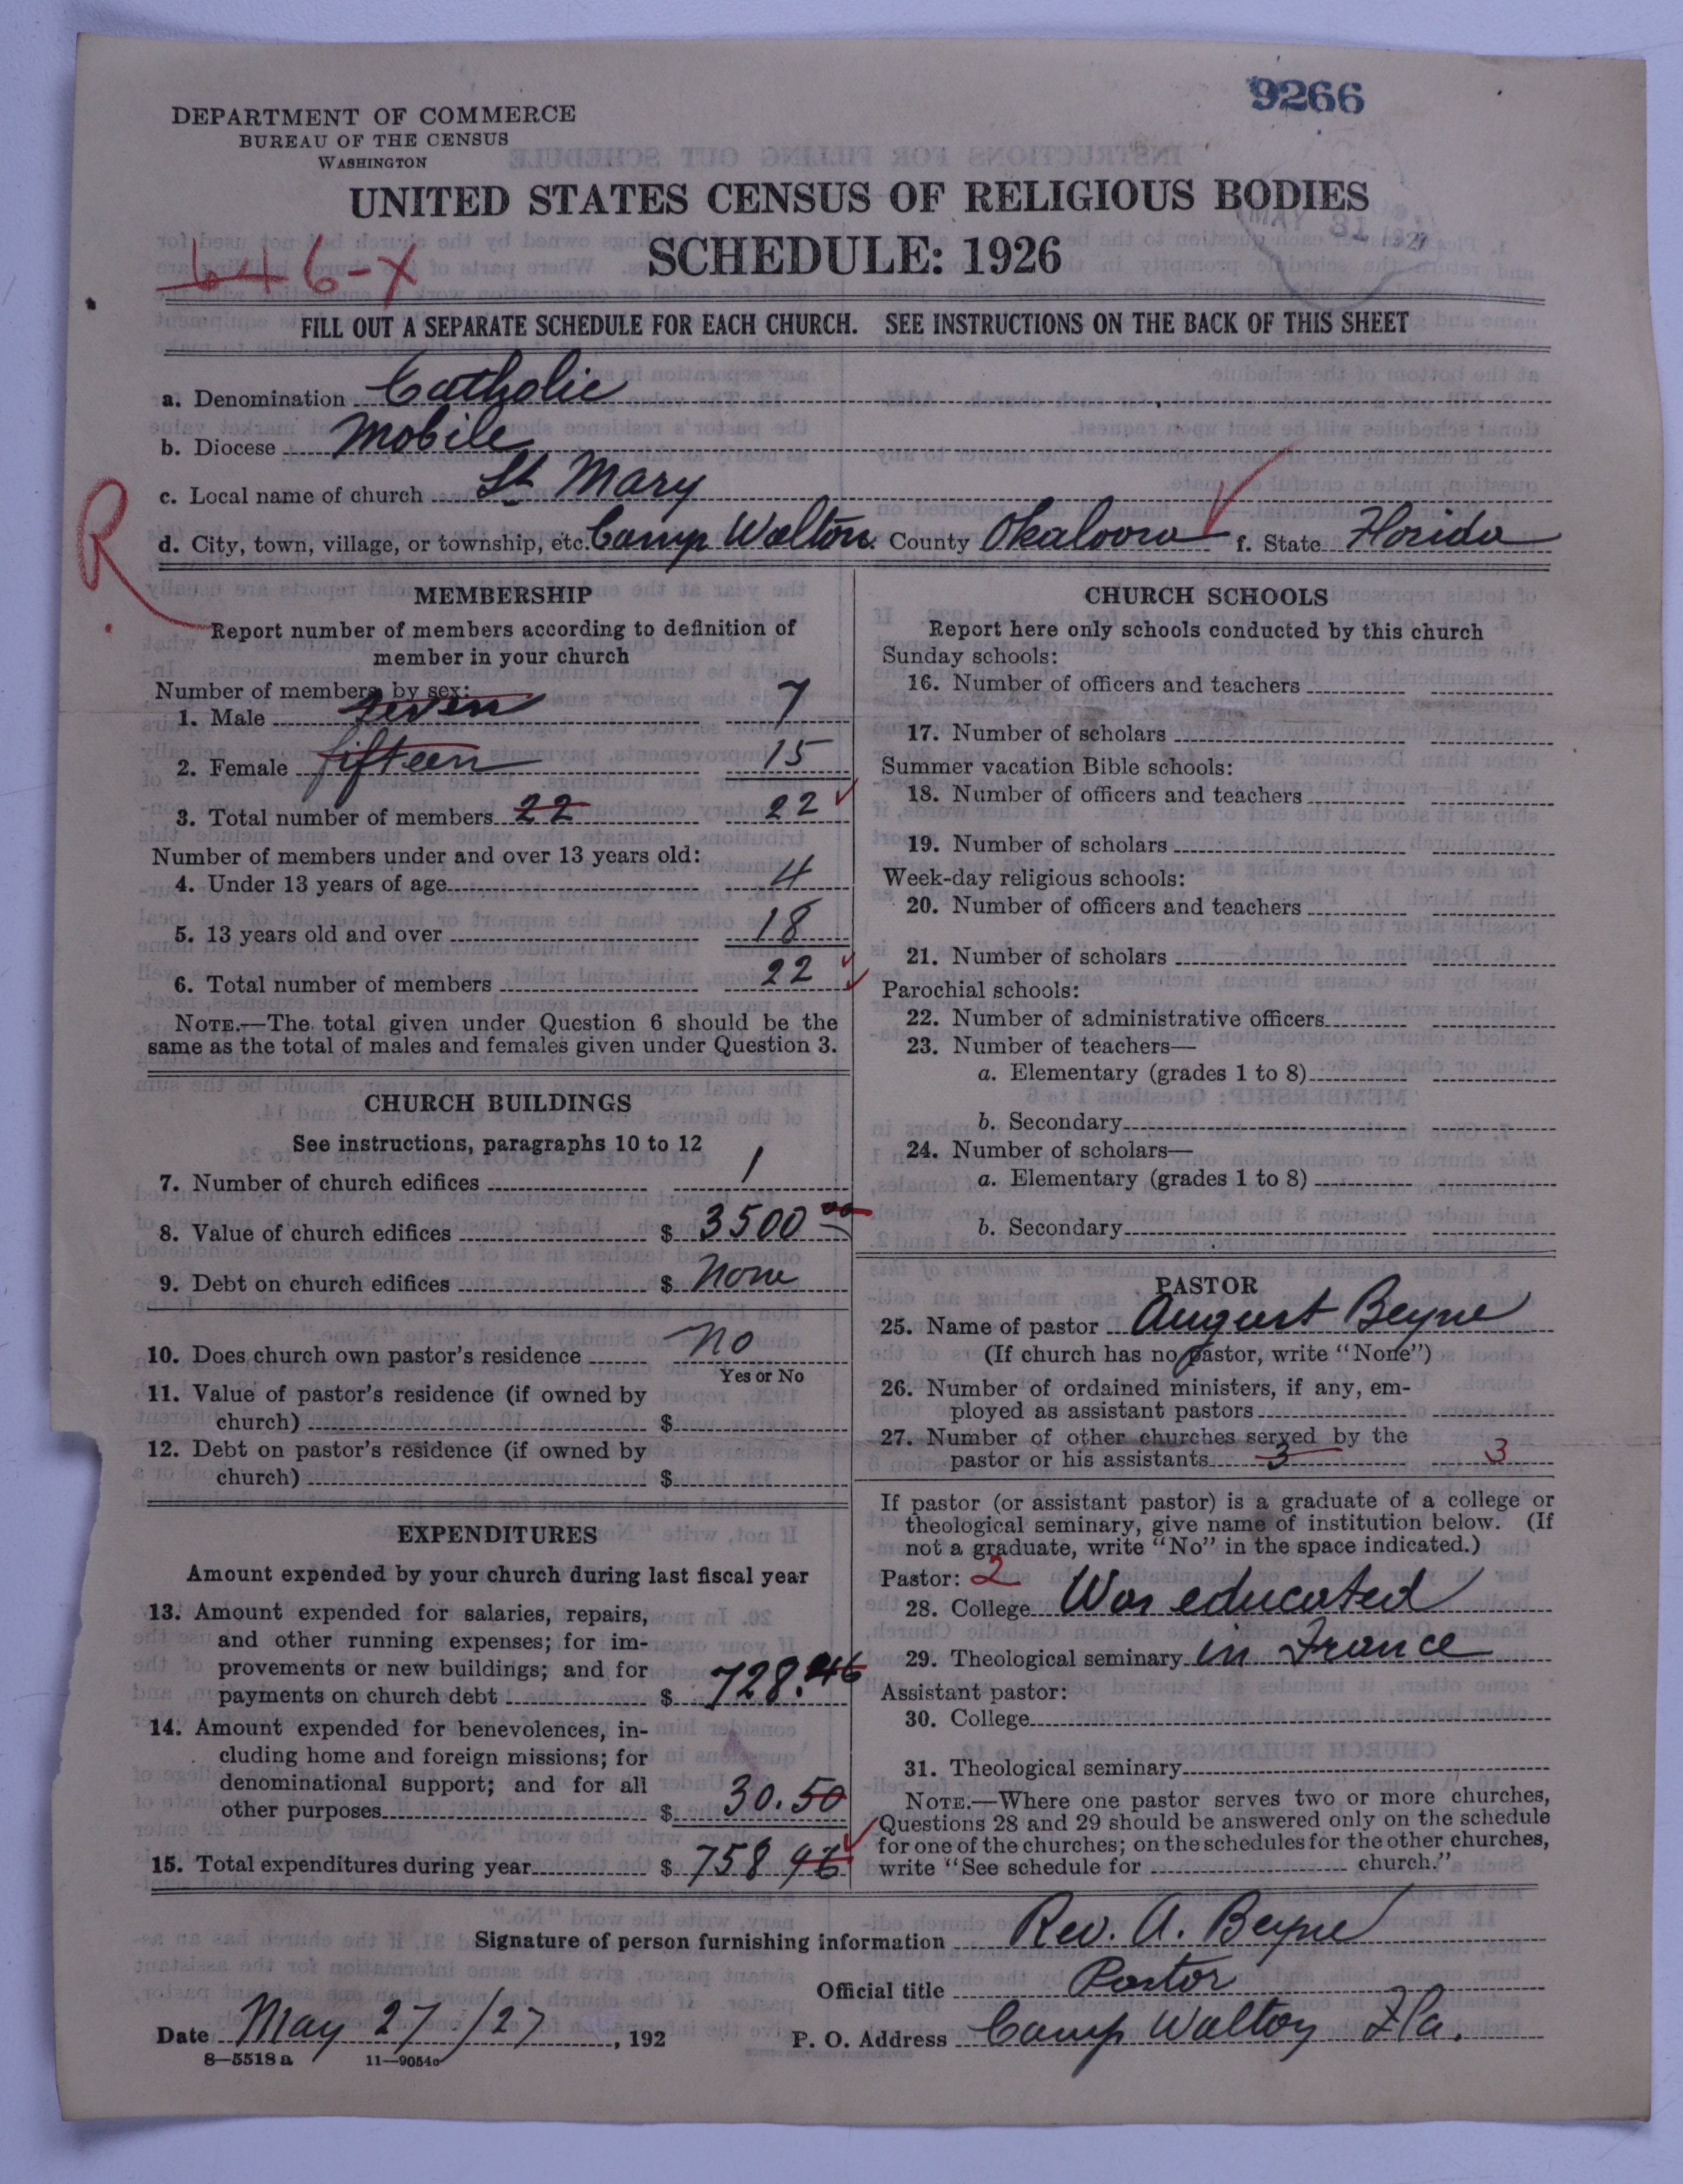 9266
DEPARTMENT OF COMMERCE
BUREAU OF THE CENSUS
WASHINGTON
UNITED STATES CENSUS OF RELIGIOUS BODIES
MAY 31 1927
SCHEDULE: 1926
646-X
FILL OUT A SEPARATE SCHEDULE FOR EACH CHURCH. SEE INSTRUCTIONS ON THE BACK OF THIS SHEET
a. Denomination Catholic
b. Diocese Mobile
c. Local name of church St Mary
R
d. City, town, village, or township, etc. Camp Walton County Okaloosa f. State Florida
MEMBERSHIP
Report number of members according to definition of
member in your church
Number of members by sex:
1. Male seven 7
2. Female fifteen 15
3. Total number of members 22 22
Number of members under and over 13 years old:
4. Under 13 years of age 4
5. 13 years old and over 18
6. Total number of members 22
NOTE.—The total given under Question 6 should be the
same as the total of males and females given under Question 3.
CHURCH BUILDINGS
See instructions, paragraphs 10 to 12
7. Number of church edifices 1
8. Value of church edifices $ 3500 00
9. Debt on church edifices $ None
10. Does church own pastor's residence no
Yes or No
11. Value of pastor's residence (if owned by
church) $
12. Debt on pastor's residence (if owned by
church) $
EXPENDITURES
Amount expended by your church during last fiscal year
13. Amount expended for salaries, repairs,
and other running expenses; for im-
provements or new buildings; and for
payments on church debt $ 728.46
14. Amount expended for benevolences, in-
cluding home and foreign missions; for
denominational support; and for all
other purposes $ 30.50
15. Total expenditures during year $ 758 96
CHURCH SCHOOLS
Report here only schools conducted by this church
Sunday schools:
16. Number of officers and teachers
17. Number of scholars
Summer vacation Bible schools:
18. Number of officers and teachers
19. Number of scholars
Week-day religious schools:
20. Number of officers and teachers
21. Number of scholars
Parochial schools:
22. Number of administrative officers
23. Number of teachers—
a. Elementary (grades 1 to 8)
b. Secondary
24. Number of scholars—
a. Elementary (grades 1 to 8)
b. Secondary
PASTOR
25. Name of pastor August Beyne
(If church has no pastor, write "None")
26. Number of ordained ministers, if any, em-
ployed as assistant pastors
27. Number of other churches served by the
pastor or his assistants 3 3
If pastor (or assistant pastor) is a graduate of a college or
theological seminary, give name of institution below. (If
not a graduate, write "No" in the space indicated.)
Pastor: 2
28. College Was educated
29. Theological seminary in France
Assistant pastor:
30. College
31. Theological seminary
NOTE.—Where one pastor serves two or more churches,
Questions 28 and 29 should be answered only on the schedule
for one of the churches; on the schedules for the other churches,
write "See schedule for church."
Signature of person furnishing information Rev. A. Beyne
Official title Pastor
Date May 27/27, 192 P. O. Address Camp Walton Fla.
8—5518a 11—9054c